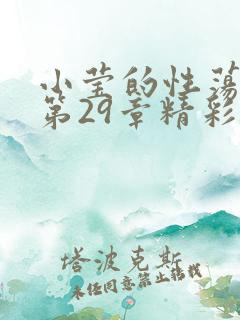 小莹的性荡
第29章精彩
塔波克斯
未经同意禁止转载